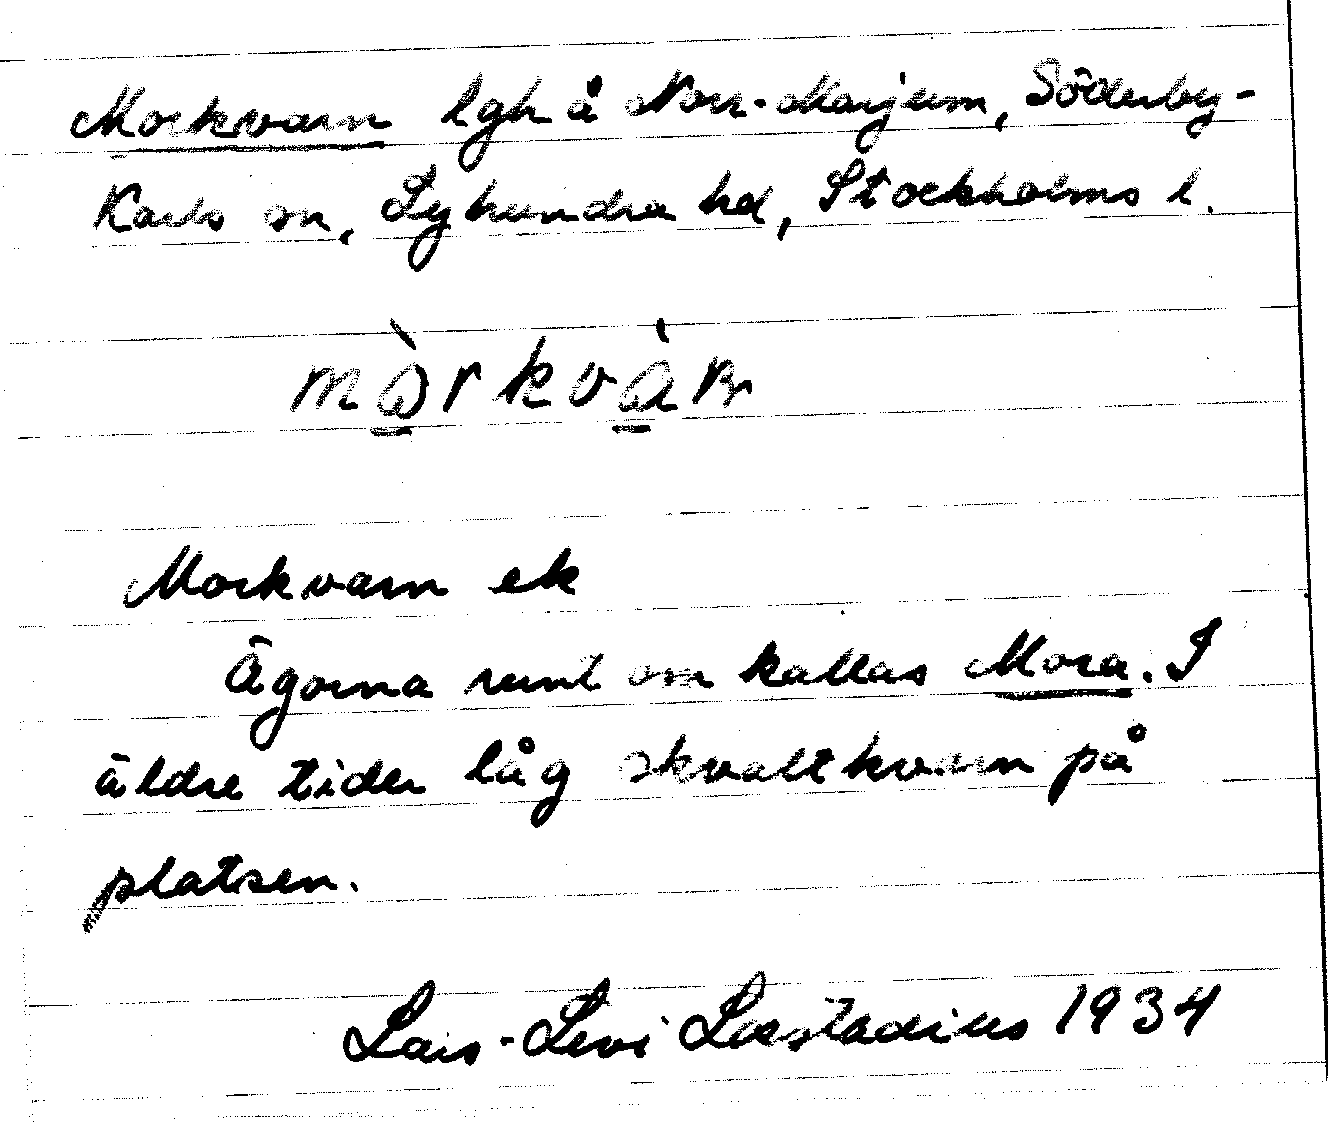 Morkvarn lgh å Norr-Marjum, Söderby-
Karls sn, Lyhundra hd, Stockholms l.
mòrkvàn
Morkvarn ek
Ägorna runt om kallas Mora. I
äldre tider låg skvaltkvarn på
platsen.
Lars-Levi Læstadius 1934